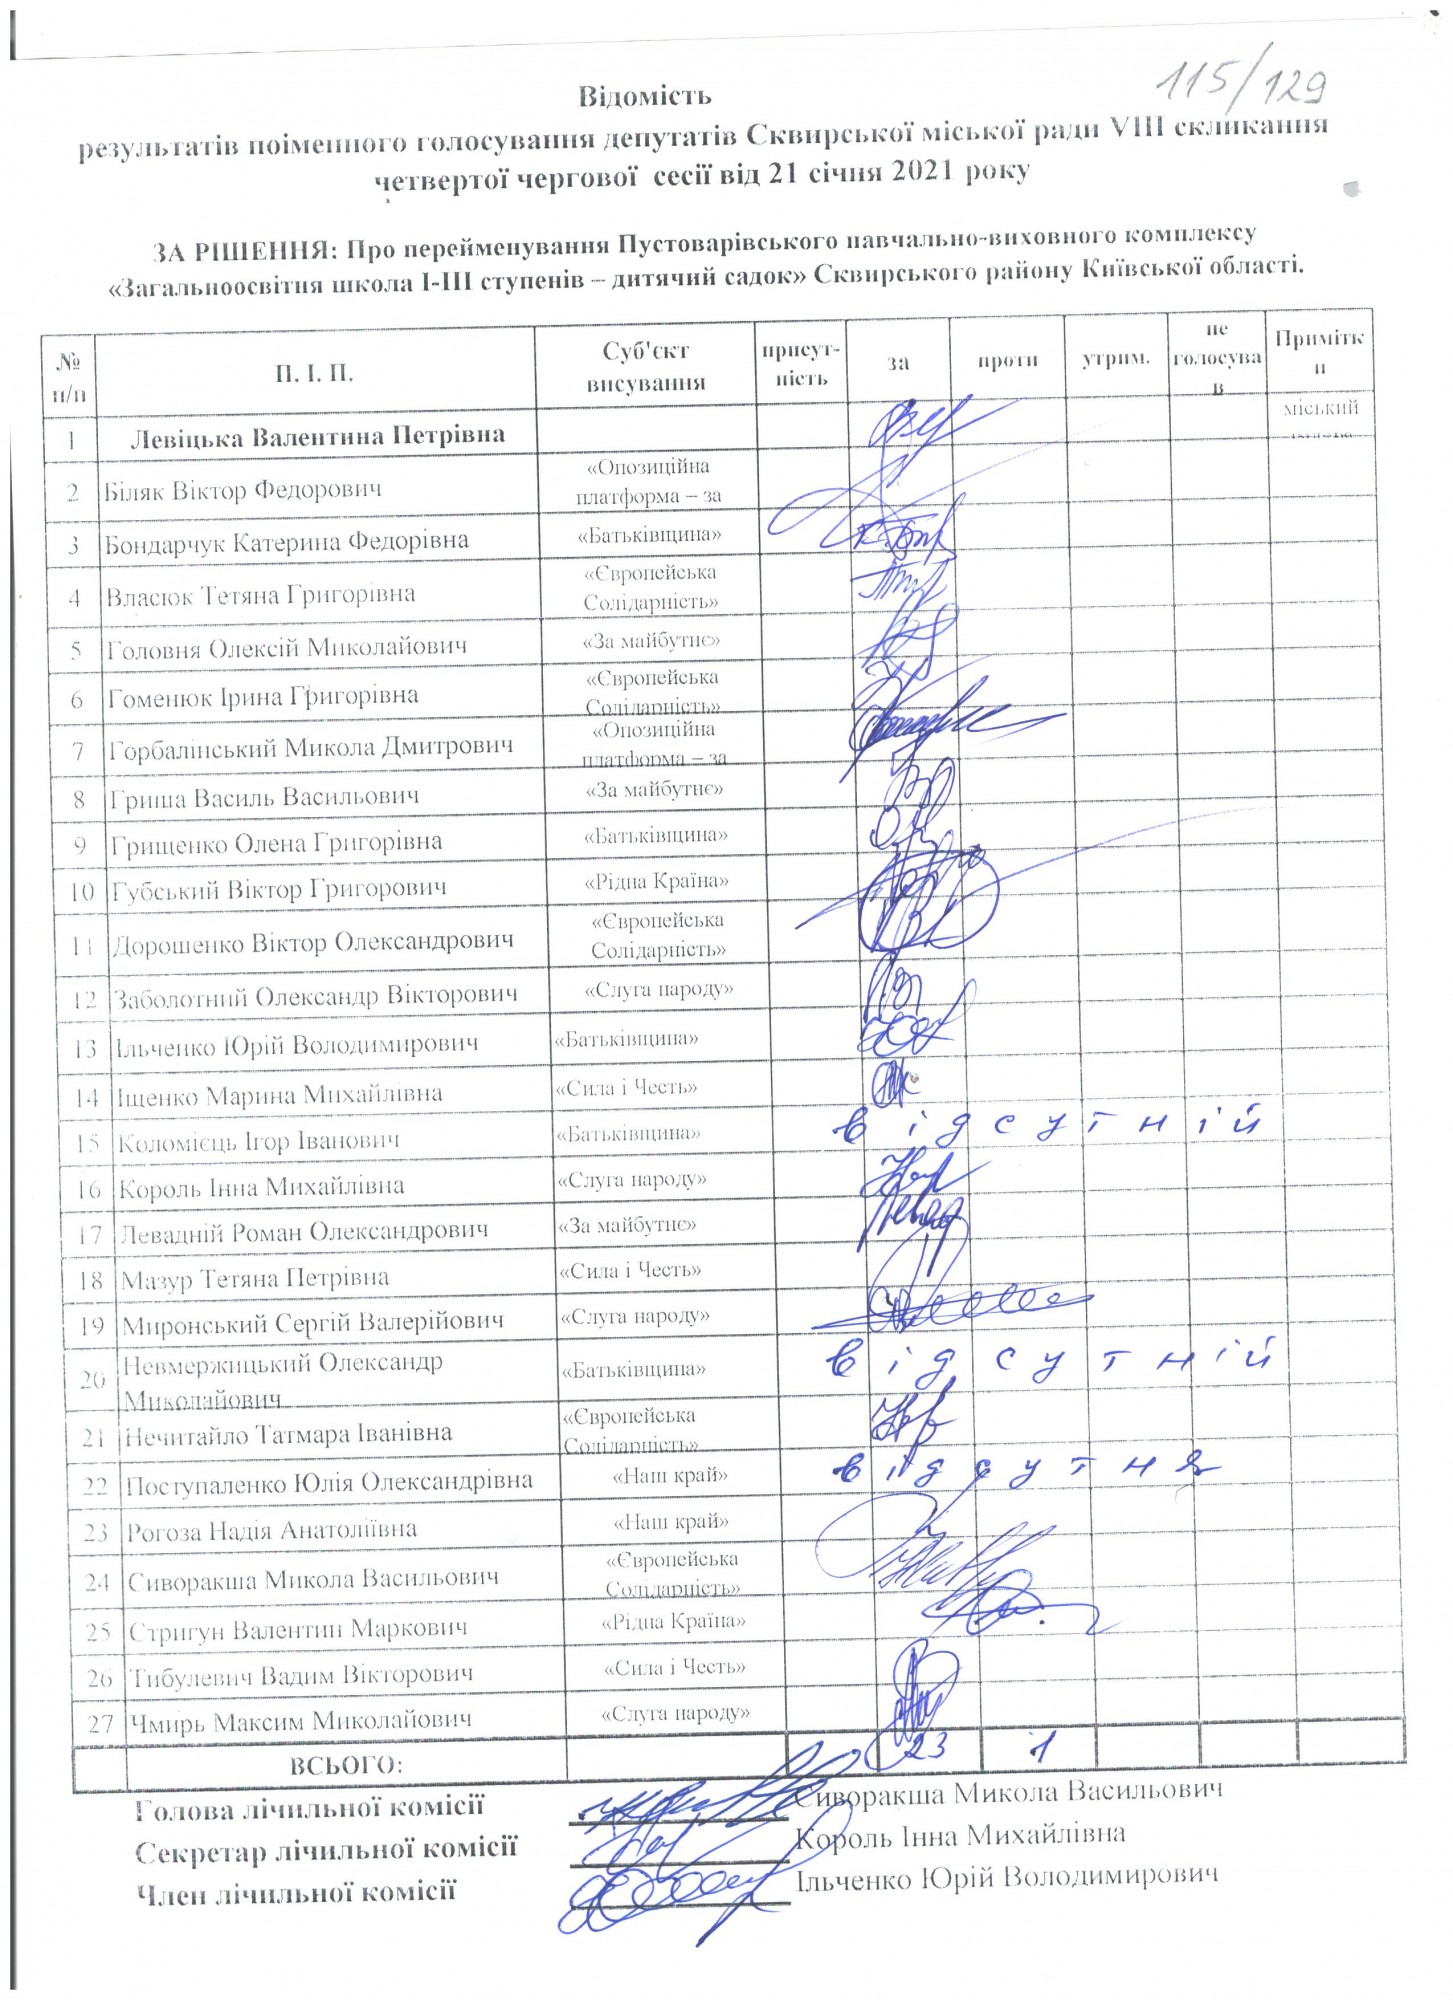 115/129
Відомість
результатів поіменного голосування депутатів Сквирської міської ради VIII скликання
четвертої чергової сесії від 21 січня 2021 року
ЗА РІШЕННЯ: Про перейменування Пустоварівського навчально-виховного комплексу
«Загальноосвітня школа І-ІІІ ступенів – дитячий садок» Сквирського району Київської області.
№ п/п П. І. П. Суб'єкт висування присут-ність за проти утрим. не голосував Примітки
1 Левіцька Валентина Петрівна міський
2 Біляк Віктор Федорович «Опозиційна платформа – за
3 Бондарчук Катерина Федорівна «Батьківщина»
4 Власюк Тетяна Григорівна «Європейська Солідарність»
5 Головня Олексій Миколайович «За майбутнє»
6 Гоменюк Ірина Григорівна «Європейська Солідарність»
7 Горбалінський Микола Дмитрович «Опозиційна платформа – за
8 Гриша Василь Васильович «За майбутнє»
9 Грищенко Олена Григорівна «Батьківщина»
10 Губський Віктор Григорович «Рідна Країна»
11 Дорошенко Віктор Олександрович «Європейська Солідарність»
12 Заболотний Олександр Вікторович «Слуга народу»
13 Ільченко Юрій Володимирович «Батьківщина»
14 Іщенко Марина Михайлівна «Сила і Честь»
15 Коломієць Ігор Іванович «Батьківщина» відсутній
16 Король Інна Михайлівна «Слуга народу»
17 Левадній Роман Олександрович «За майбутнє»
18 Мазур Тетяна Петрівна «Сила і Честь»
19 Миронський Сергій Валерійович «Слуга народу»
20 Невмержицький Олександр Миколайович «Батьківщина» відсутній
21 Нечитайло Татмара Іванівна «Європейська Солідарність»
22 Поступаленко Юлія Олександрівна «Наш край» відсутня
23 Рогоза Надія Анатоліївна «Наш край»
24 Сиворакша Микола Васильович «Європейська Солідарність»
25 Стригун Валентин Маркович «Рідна Країна»
26 Тибулевич Вадим Вікторович «Сила і Честь»
27 Чмирь Максим Миколайович «Слуга народу»
ВСЬОГО: 23 1
Голова лічильної комісії Сиворакша Микола Васильович
Секретар лічильної комісії Король Інна Михайлівна
Член лічильної комісії Ільченко Юрій Володимирович